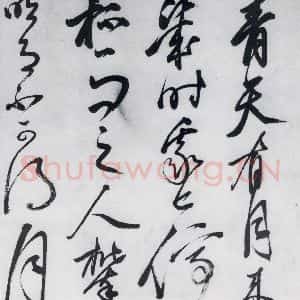 青天有月来
幾时我今停
杯一问之人攀
明月不可得月
Shufawang.CN